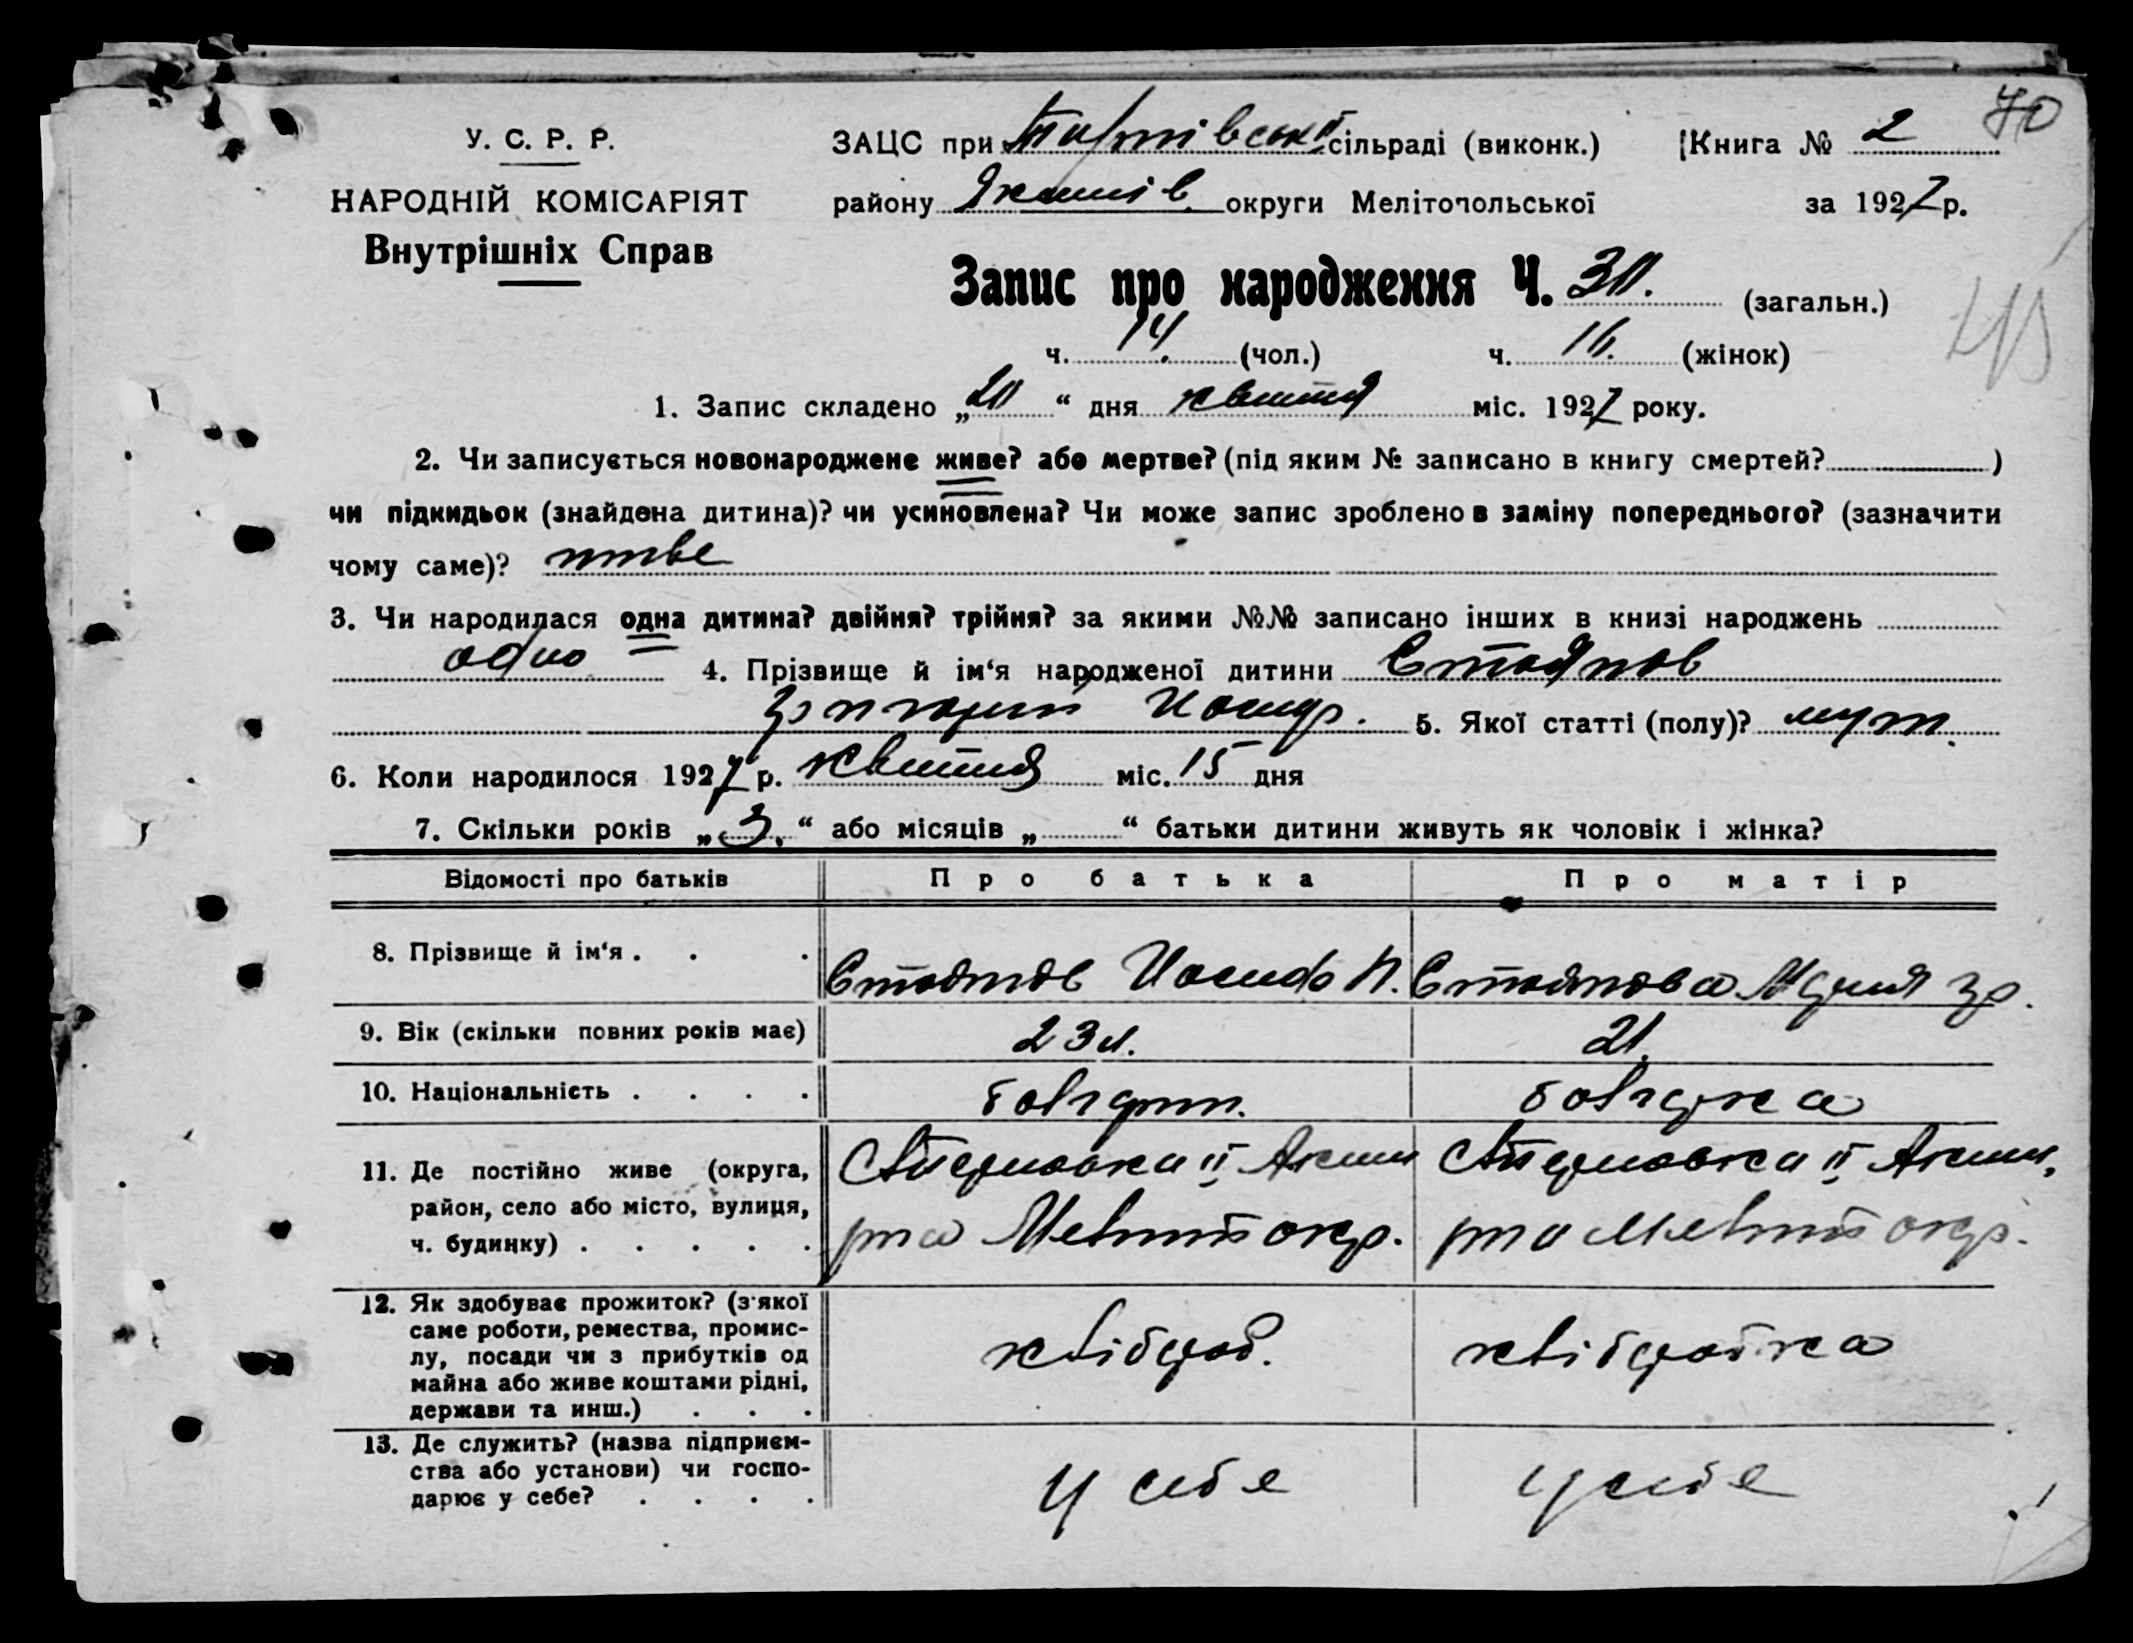 70
У. С. Р. Р.
НАРОДНІЙ КОМІСАРІЯТ
Внутрішніх Справ
ЗАЦС при сільраді (виконк.) Книга № 2
району Якимів. округи Мелітопольської за 1927 р.
Запис про народження Ч. 30. (загальн.)
ч. 14. (чол.) ч. 16. (жінок)
1. Запис складено „20“ дня квитня міс. 1927 року.
2. Чи записується новонароджене живе? або мертве? (під яким № записано в книгу смертей? )
чи підкидьок (знайдена дитина)? чи усиновлена? Чи може запис зроблено в заміну попереднього? (зазначити
чому саме)?
3. Чи народилася одна дитина? двійня? трійня? за якими №№ записано інших в книзі народжень
одно 4. Прізвище й ім‘я народженої дитини Стоянов
5. Якої статті (полу)?
6. Коли народилося 1927 р. квитня міс. 15 дня
7. Скільки років „3.“ або місяців „ “ батьки дитини живуть як чоловік і жінка?
Відомості про батьків Про батька Про матір
8. Прізвище й ім‘я . . . Стоянов Иосиф П. Стоянова Мария Гр.
9. Вік (скільки повних років має) 23 л. 21.
10. Національність . . . . болгарин. болгарка
11. Де постійно живе (округа,
район, село або місто, вулиця,
ч. будинку) . . . . . р-на Меліт окр. р-на Меліт окр.
12. Як здобуває прожиток? (з‘якої
саме роботи, ремества, промис-
лу, посади чи з прибутків од
майна або живе коштами рідні,
держави та инш.) . . . хлібороб. хліборобка
13. Де служить? (назва підприєм-
ства або установи) чи госпо-
дарює у себе? . . . . у себе у себе